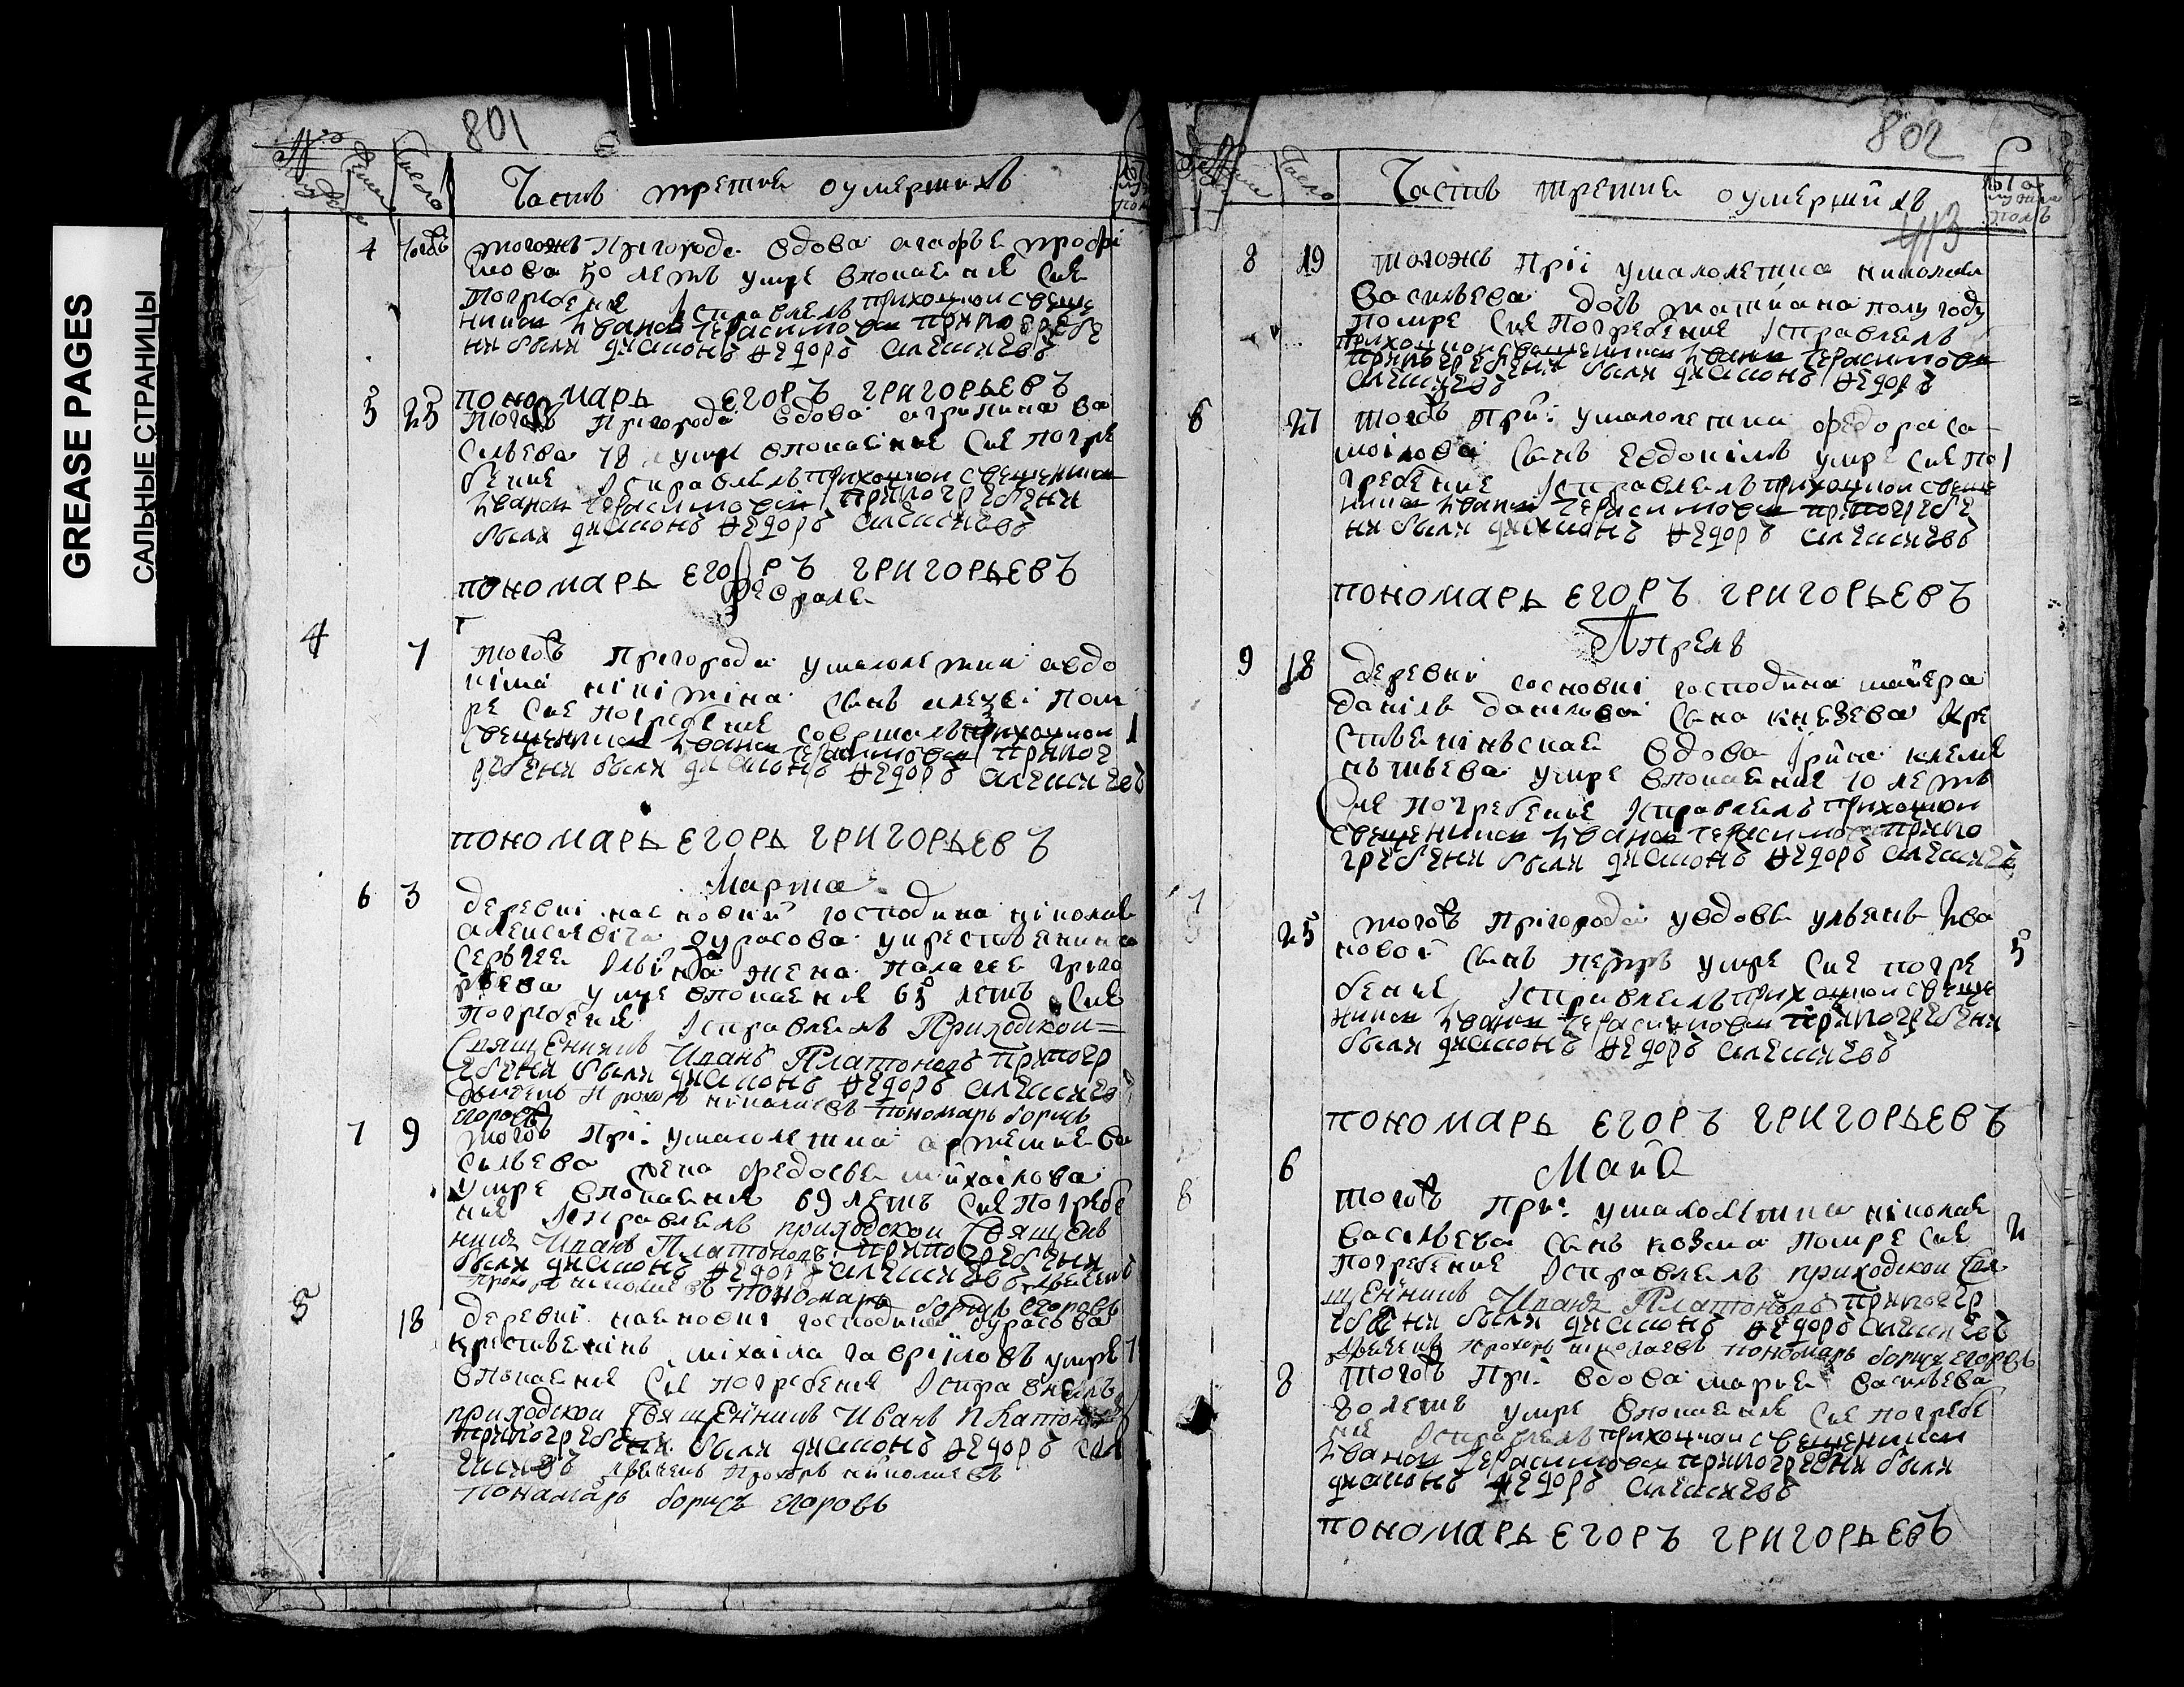 GREASE PAGES
САЛЬНЫЕ СТРАНИЦЫ
801
Число
Часть третие оумершихъ
4
тогожъ Прігорода вдова агафъе трофі
мова 50 летъ умре впокаение сие
погребение исправлелъ приходцкои свеще
никъ Иванъ Герасимовъ при погребе
ни были диаконъ Федоръ Алексиевъ
пономарь ЕГОРЪ ГРИГОРЬЕВЪ
5 25 тогожъ Прігорода вдова агрипина ва
сильева 78 умре впокаение сие погре
бение исправлелъ приходцкои свещеникъ
Иванъ Герасимовъ при погребени
были диаконъ Федоръ Алексиевъ
пономарь ЕГОРЪ ГРИГОРЬЕВЪ
февралe
4 7 тогожъ Прігорода умалолетка авдо
кіма нікітіна сынъ алекеі пом
ре сие погребение совершалъ приходцкои 1
свещенникъ Иванъ Герасимовъ при пог
ребени были диаконъ Федоръ Алексиевъ
пономарь ЕГОРЬ ГРИГОРЬЕВЪ
Марта
6 3 деревні господина ніколае
алексиевіча дурасова укрестьенина
сергее жена палагее григо
рьева умре впокаение 65 летъ сие
погребение исправлелъ Приходской
Священникъ Иванъ Платоновъ при погр
ебени были диаконъ Федоръ Алексиевъ
Прохоръ ніколаевъ пономарь борисъ
егоровъ
7 9 тогожъ Прі: умалолетка артемие ва
сильева жена федосье михаілова
умре впокаение 69 летъ сие погребе
ние исправлелъ приходской Священ
никъ Иванъ Платоновъ при погребени
были диаконъ Федоръ Алексиевъ
Прохоръ николаевъ пономарь борисъ егоровъ
5 18 деревні господина дурасова
крестьенінъ міхаіла гавріиловъ умре 1
впокаение сие погребение исправлелъ
приходской Священникъ Иванъ Платоновъ
при погребени были диаконъ Федоръ Але
ксиевъ Прохоръ николаевъ
пономарь борисъ егоровъ
802
Число
Часть третие оумершихъ
413
8 19 тогожъ Прі: умалолетка николае
васильева дочь татиана полугоду
помре сие погребение исправлелъ
приходцкои свещенникъ Иванъ Герасимовъ
при погребени были диаконъ Федоръ
Алексиевъ
6 27 тогожъ Прі: умалолетка федора са
моілова сынъ евдокімъ умре сие по 1
гребение исправлелъ приходцкои свеще
никъ Иванъ Герасимовъ при погребе
ни были диаконъ Федоръ Алексиевъ
пономарь ЕГОРЪ ГРИГОРЬЕВЪ
Апрель
9 18 деревні сосновкі господина маиера
даніла данілова сына кнезева кре
вдова ирина клеме
нтьева умре впокаение 70 летъ
сие погребение исправлелъ приходцкои
свещенникъ Иванъ Герасимовъ при по
гребени были диаконъ Федоръ Алексиевъ
7 25 тогожъ Прігорода увдовы ульены Ива
новой сынъ петръ умре сие погре 5
бение исправлелъ приходцкои свеще
никъ Иванъ Герасимовъ при погребени
были диаконъ Федоръ Алексиевъ
пономарь ЕГОРЪ ГРИГОРЬЕВЪ
Майя
8 6 тогожъ При: умалолетка ніколае
васильева сынъ козма помре сие 2
погребение исправлелъ приходской Свя
щенникъ Иванъ Платоновъ при погр
ебени были диаконъ Федоръ Алексиевъ
Прохоръ николаевъ пономарь борисъ егоровъ
8 тогожъ Прі: вдова марие васильева
80 летъ умре впокаение сие погребе
ние исправлелъ приходцкои свещенникъ
Иванъ Герасимовъ при погребени были
диаконъ Федоръ Алексиевъ
пономарь ЕГОРЪ ГРИГОРЬЕВЪ